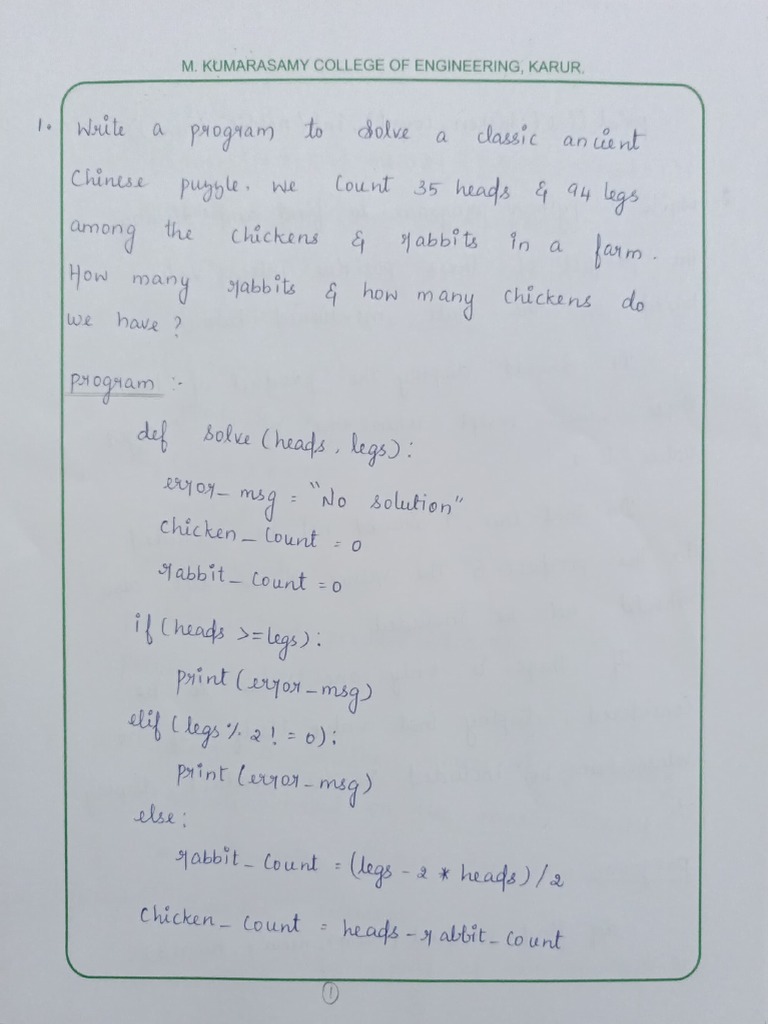 M. KUMARASAMY COLLEGE OF ENGINEERING, KARUR.
1. Write a program to solve a classic ancient
Chinese puzzle. We count 35 heads & 94 legs
among the chickens & rabbits in a farm.
How many rabbits & how many chickens do
we have?
program :-
def solve (heads, legs):
error_msg = "No solution"
chicken_count = 0
rabbit_count = 0
if (heads >= legs):
print (error_msg)
elif (legs % 2 ! = 0):
print (error_msg)
else:
rabbit_count = (legs - 2 * heads) / 2
chicken_count = heads - rabbit_count
1